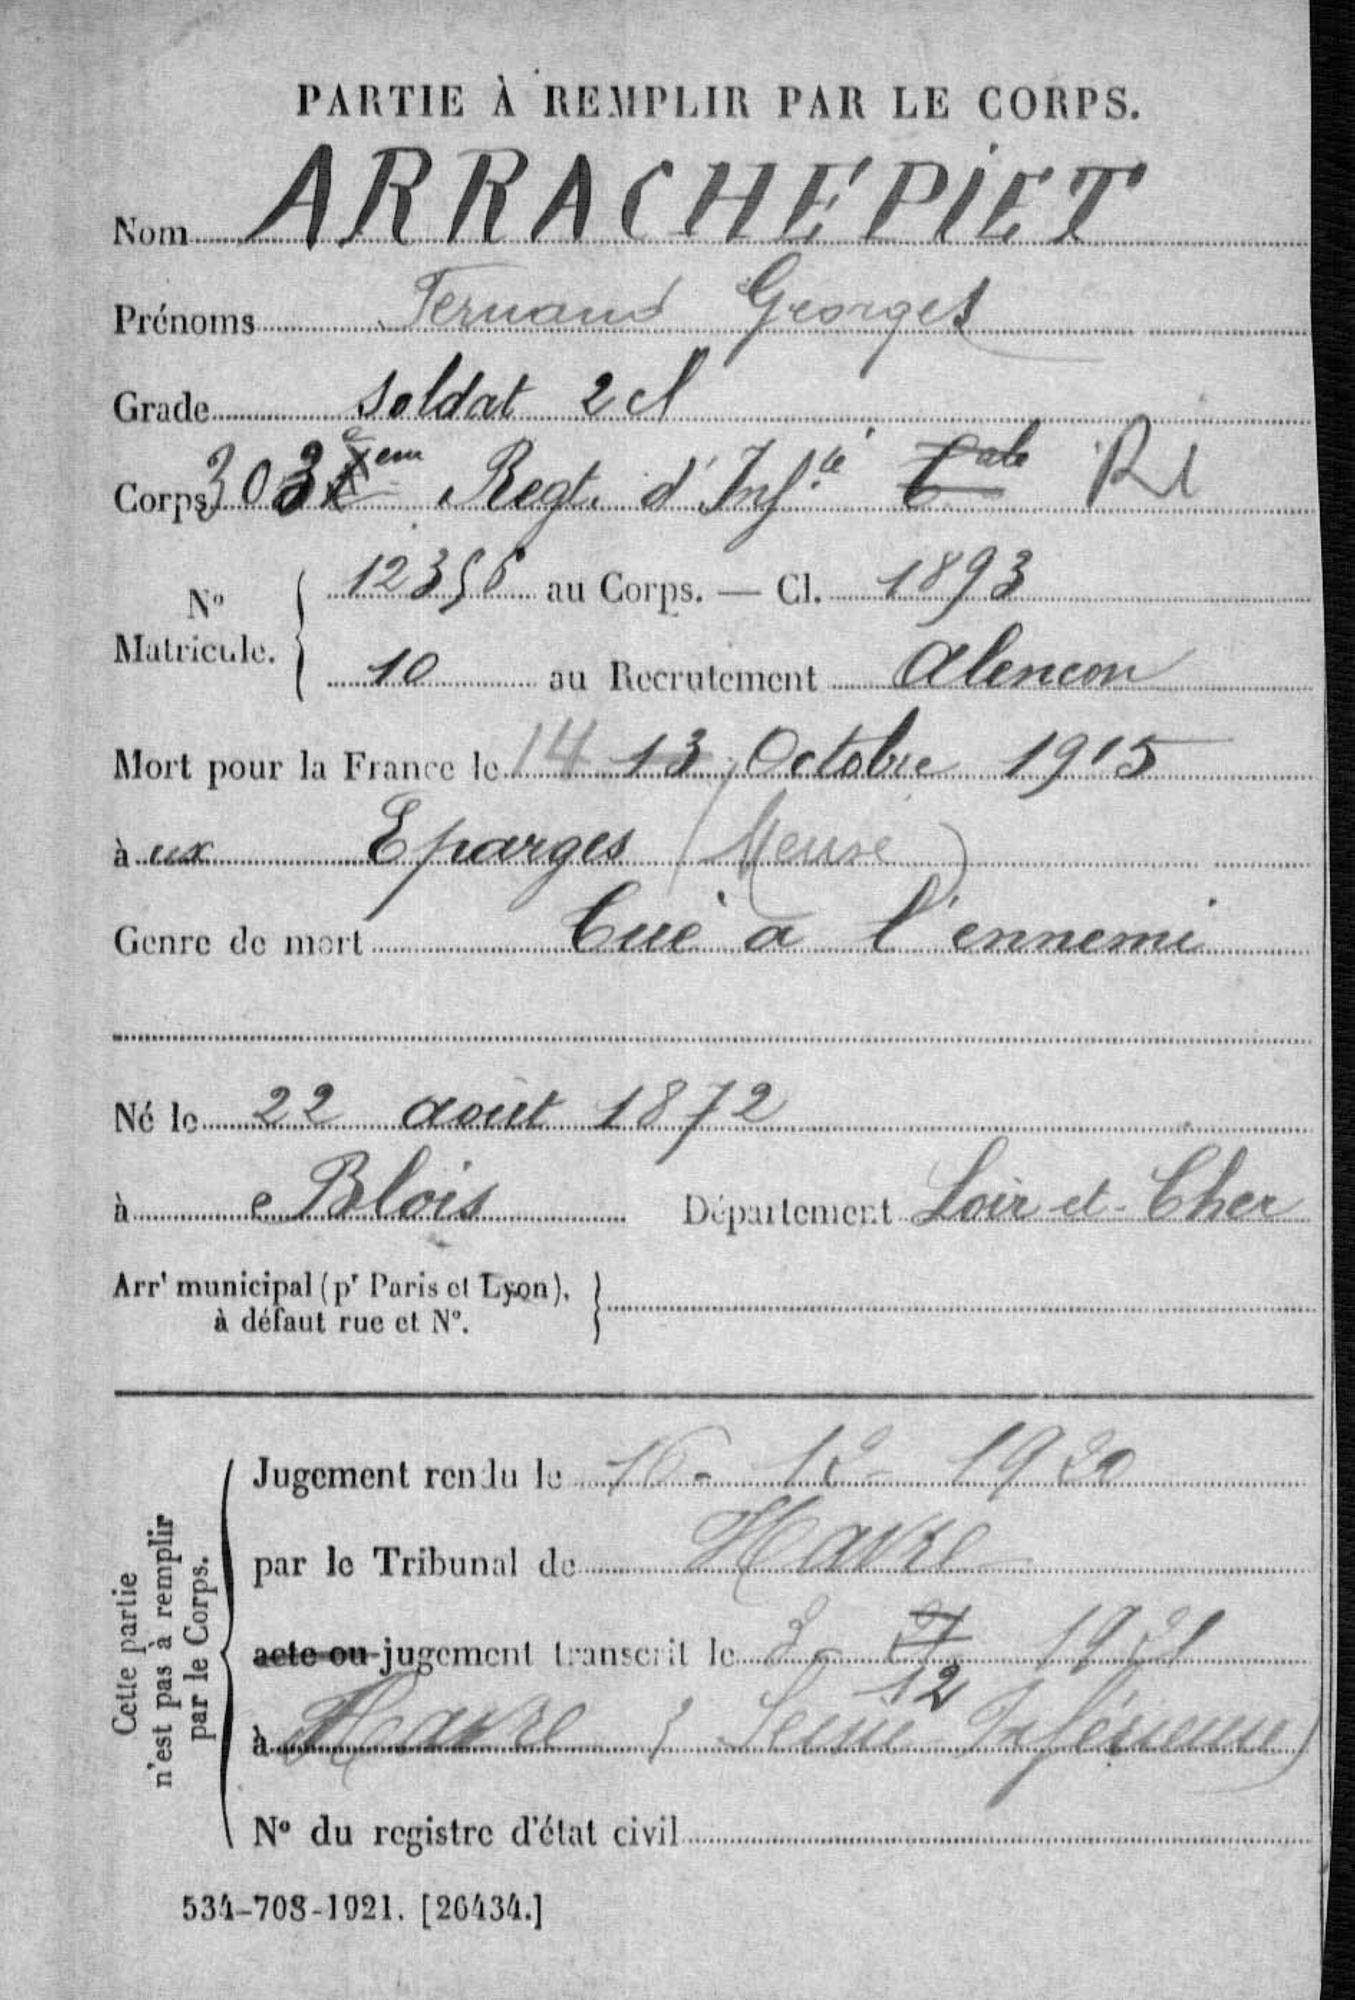 PARTIE À REMPLIR PAR LE CORPS.
Nom ARRACHEPIET
Prénoms Fernand Georges
Grade soldat 2 cl
Corps 303 em Regt. d'Inf.ie Cale RI
No Matricule. 12356 au Corps. — Cl. 1893
10 au Recrutement Alencon
Mort pour la France le 14 13 Octobre 1915
à ux Eparges (Meuse)
Genre de mort Tué à l'ennemi
Né le 22 août 1872
à Blois Département Loir-et-Cher
Arrt municipal (pr Paris et Lyon),
à défaut rue et N°.
Cette partie n'est pas à remplir par le Corps.
Jugement rendu le 16 - 12 - 1920
par le Tribunal de Havre
acte ou jugement transcrit le 3 - 1921
12
à Havre (Seine Inférieure)
N° du registre d'état civil
534-708-1921. [26434.]